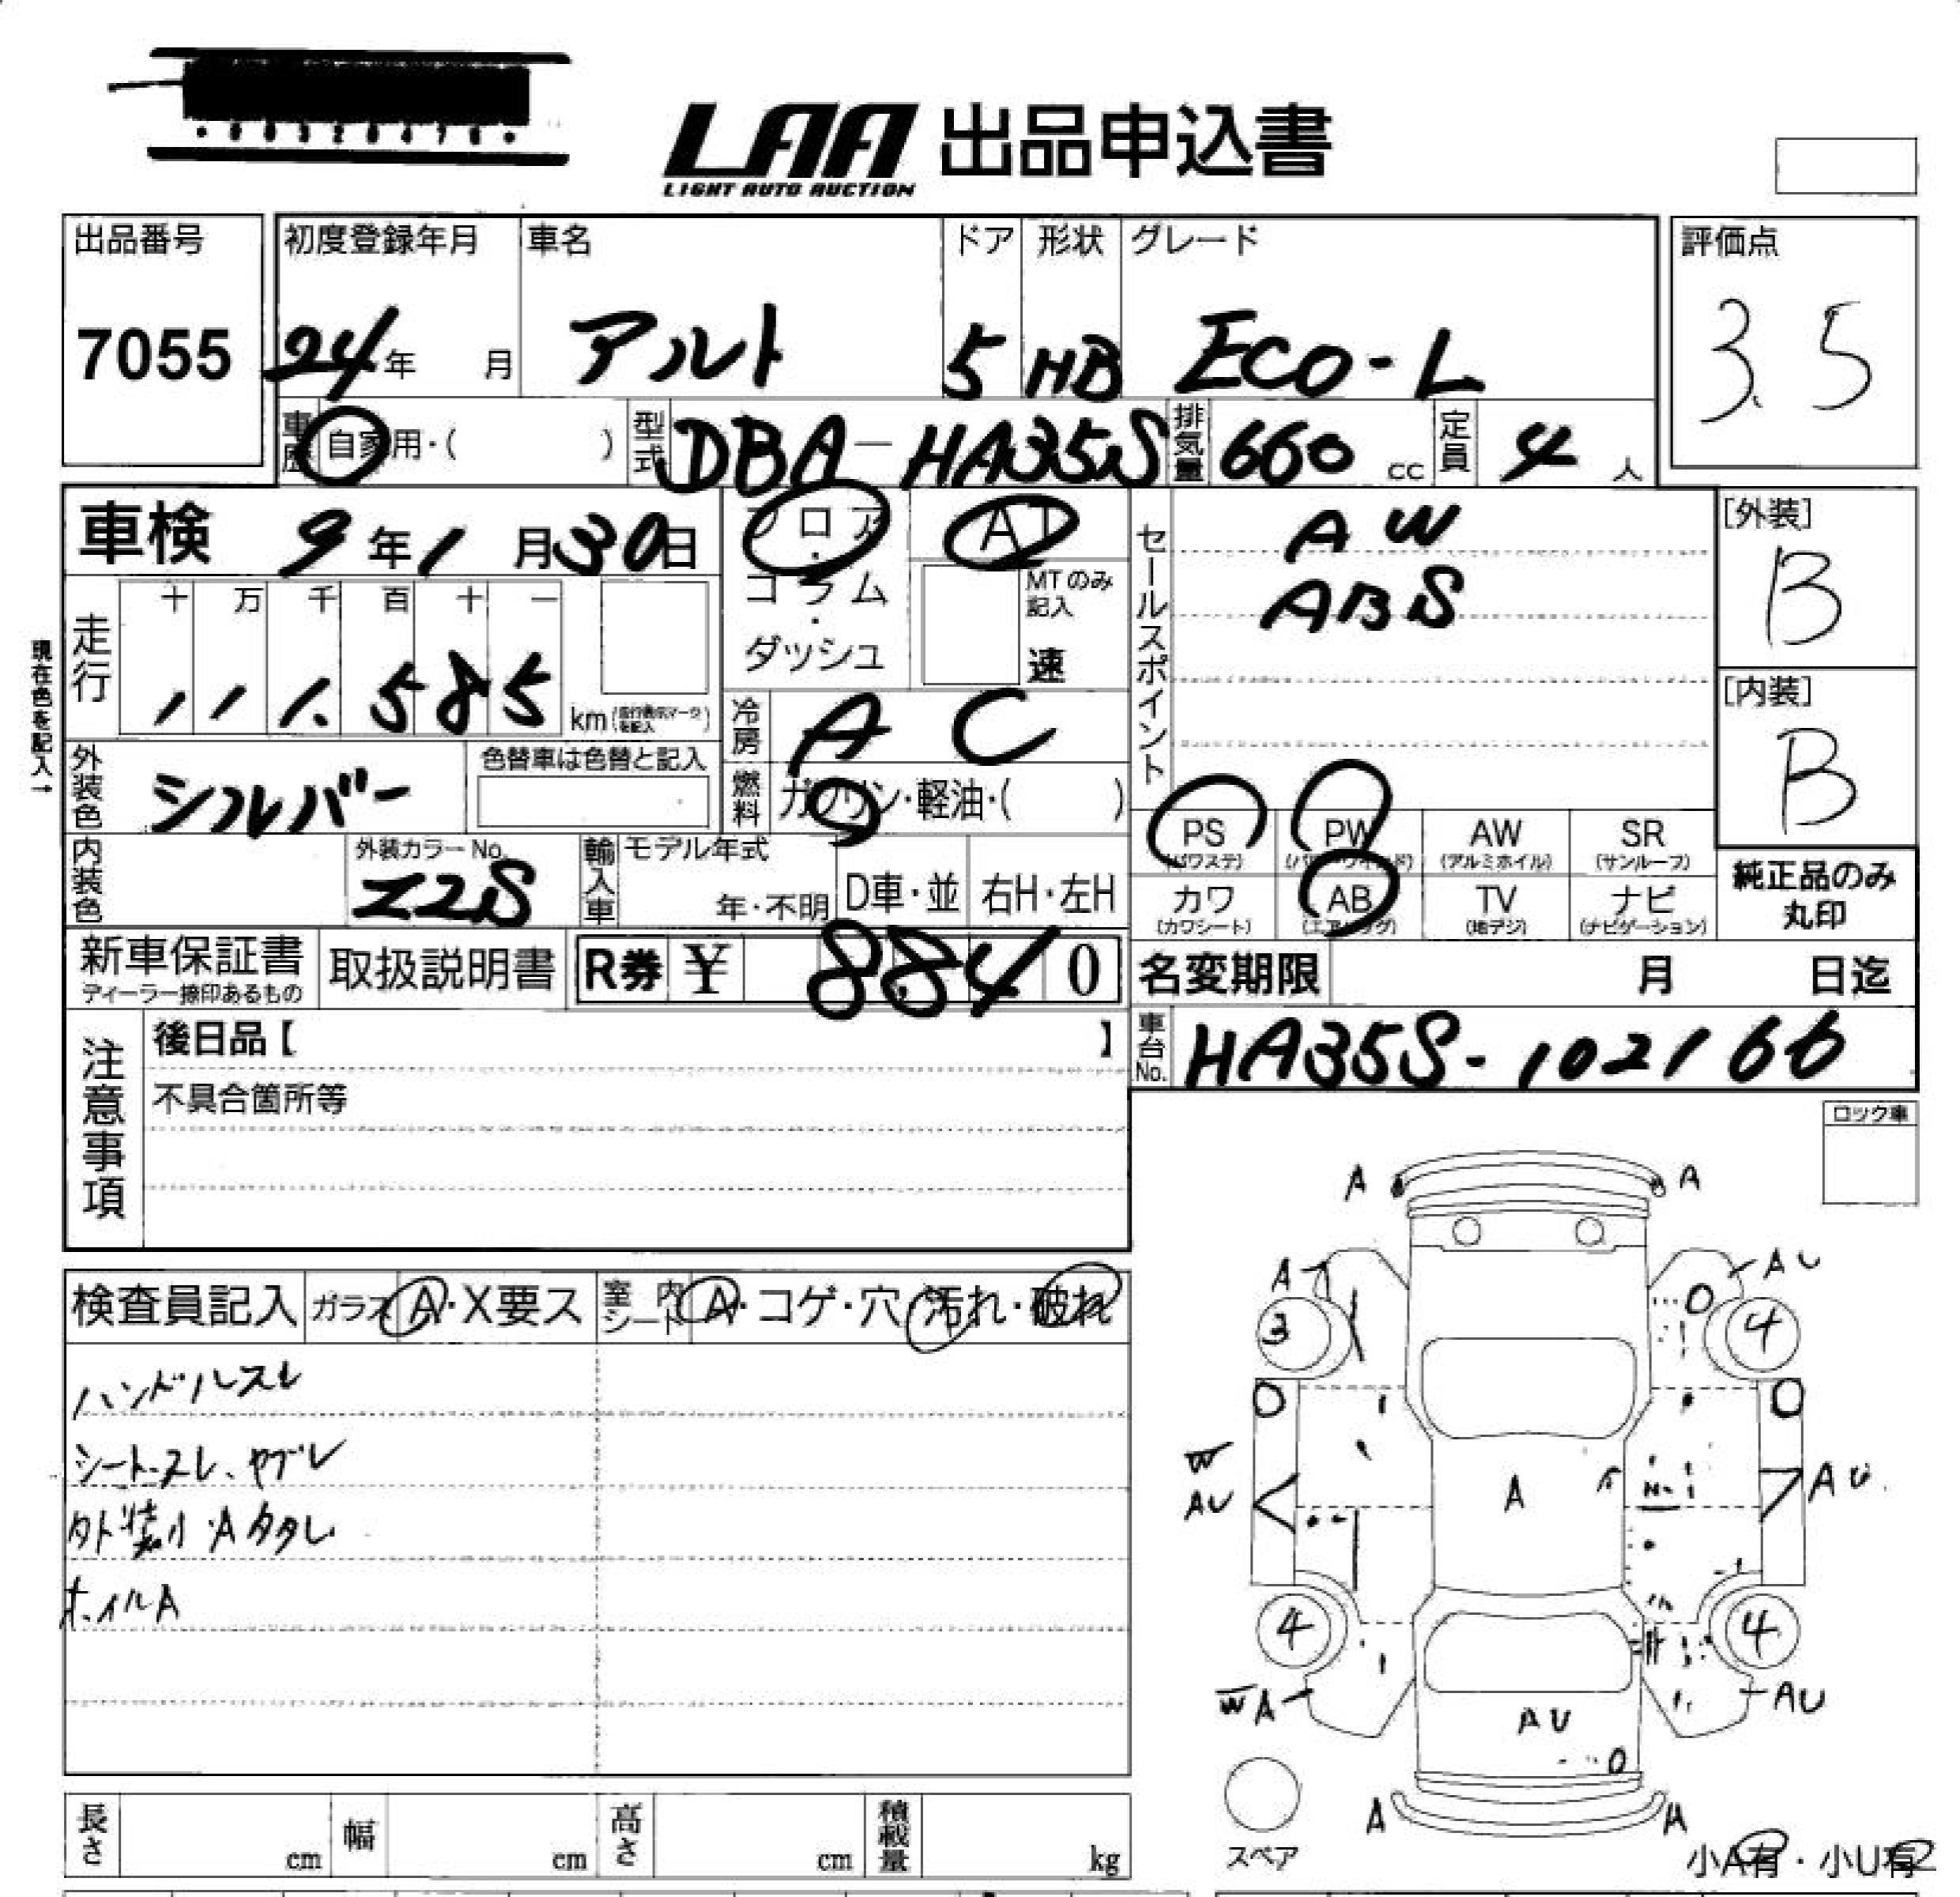 LAA 出品申込書
LIGHT AUTO AUCTION
出品番号
7055
初度登録年月
24年 月
車名
アルト
ドア
5
形状
HB
グレード
ECO-L
評価点
3.5
車歴 自家用・( )
型式 DBA-HA35S
排気量 660 cc
定員 4 人
車検 9年1月30日
フロア・コラム・ダッシュ
AT
MTのみ記入
速
セールスポイント
AW
ABS
[外装]
B
[内装]
B
現在色を記入→
走行
十 万 千 百 十 一
111,585 km
冷房 AC
外装色 シルバー
色替車は色替と記入
燃料 ガソリン・軽油・( )
内装色
外装カラーNo.
Z2S
輸入車
モデル年式
年・不明
D車・並
右H・左H
PS (パワステ)
PW (パワーウインド)
AW (アルミホイル)
SR (サンルーフ)
カワ (カワシート)
AB (エアバッグ)
TV (地デジ)
ナビ (ナビゲーション)
純正品のみ
丸印
新車保証書
ディーラー捺印あるもの
取扱説明書
R券 ¥ 8,840
名変期限 月 日迄
車台No. HA35S-102166
注意事項
後日品【 】
不具合箇所等
ロック車
検査員記入
ガラス A・X要ス
室内シート A・コゲ・穴・汚れ・破れ
ハンドルスレ
シートスレ、ヤブレ
外装小Aタタレ
ホイルA
A A
A AU
3 4
W
AU A AU
4 4
WA AU
AU
A A
スペア
小A有・小U有
長さ cm
幅 cm
高さ cm
積載量 kg